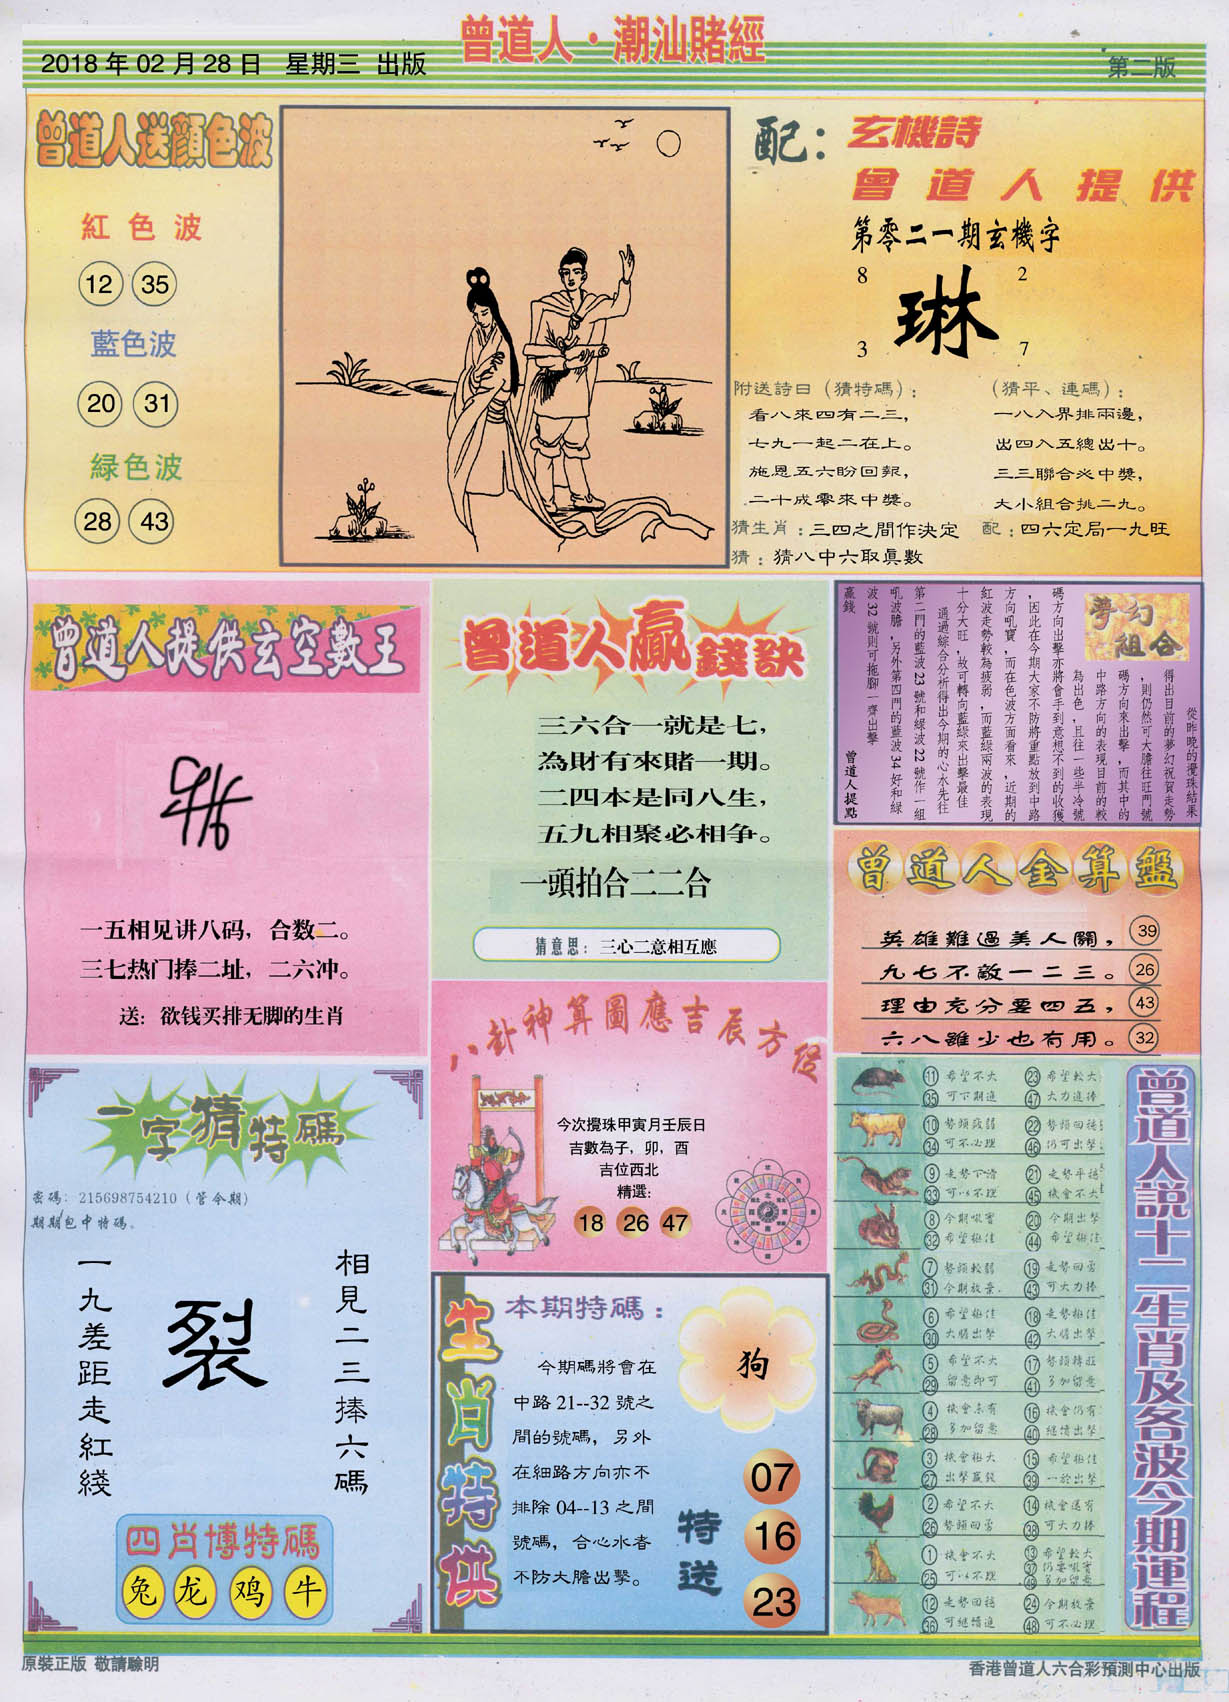 曾道人·潮汕賭經
2018年02月28日 星期三 出版
第二版
曾道人送顏色波
紅色波
12 35
藍色波
20 31
緑色波
28 43
配：玄機詩
曾道人提供
第零二一期玄機字
8 2
琳
3 7
附送詩曰（猜特碼）：
看八來四有二三，
七九一起二在上。
施恩五六盼回報，
二十成零來中獎。
（猜平、連碼）：
一八入界排兩邊，
出四入五總出十。
三三聯合必中獎，
大小組合挑二九。
猜生肖：三四之間作決定
配：四六定局一九旺
猜：猜八中六取真數
曾道人提供玄空數王
一五相见讲八码，合数二。
三七热门捧二址，二六冲。
送：欲钱买排无脚的生肖
曾道人贏錢訣
三六合一就是七，
為財有來賭一期。
二四本是同八生，
五九相聚必相争。
一頭拍合二二合
猜意思：三心二意相互應
夢幻組合
從昨晚的攪珠結果
得出目前的夢幻祝賀走勢
，則仍然可大膽往旺門號
碼方向來出擊，而其中的
中路方向的表現目前的較
為出色，且往一些半冷號
碼方向出擊亦將會手到意想不到的收獲
，因此在今期大家不防將重點放到中路
方向吼寶，而在色波方面看來，近期的
紅波走勢較為疲弱，而藍綠兩波的表現
十分大旺，故可轉向藍綠來出擊最佳
通過綜合分析得出今期的心水先往
第二門的藍波23號和綠波22號作一組
吼波膽，另外第四門的藍波34好和綠
波32號則可拖腳一齊出擊
贏錢
曾道人提點
曾道人金算盤
英雄難過美人關，39
九七不敵一二三。26
理由充分要四五，43
六八雖少也有用。32
八卦神算圖應吉辰方位
今次攪珠甲寅月壬辰日
吉數為子，卯，酉
吉位西北
精選:
18 26 47
一字猜特碼
密碼：215698754210（管今期）
期期包中特碼。
相見二三捧六碼
裂
一九差距走紅綫
四肖博特碼
兔 龙 鸡 牛
生肖特供
本期特碼：
今期碼將會在
中路21--32號之
間的號碼，另外
在細路方向亦不
排除04--13之間
號碼，合心水者
不防大膽出擊。
狗
特送
07
16
23
曾道人説十二生肖及各波今期運程
11 希望不大 23 希望較大
35 可下期進 47 大力追捧
10 勢頭疲弱 22 勢頭回穩
34 可不必理 46 仍可出擊
9 走勢下滑 21 走勢平穩
33 可以不理 45 機會不大
8 今期吼寶 20 今期出擊
32 希望極佳 44 希望極佳
7 勢頭較弱 19 走勢回勇
31 今期放棄 43 可大力捧
6 希望極佳 18 走勢極佳
30 大膽出擊 42 大膽出擊
5 希望不大 17 勢頭轉旺
29 留意即可 41 多加留意
4 機會未有 16 機會仍有
28 多加留意 40 繼續出擊
3 機會極大 15 希望極佳
27 出擊贏錢 39 一於出擊
2 希望不大 14 機會還有
26 勢頭回勇 38 可大力捧
1 機會不大 13 希望較大
25 可以不理 37 仍要吼實
49 多加留意
12 走勢回穩 24 今期放棄
36 可繼續進 48 可不必理
原裝正版 敬請驗明
香港曾道人六合彩預測中心出版